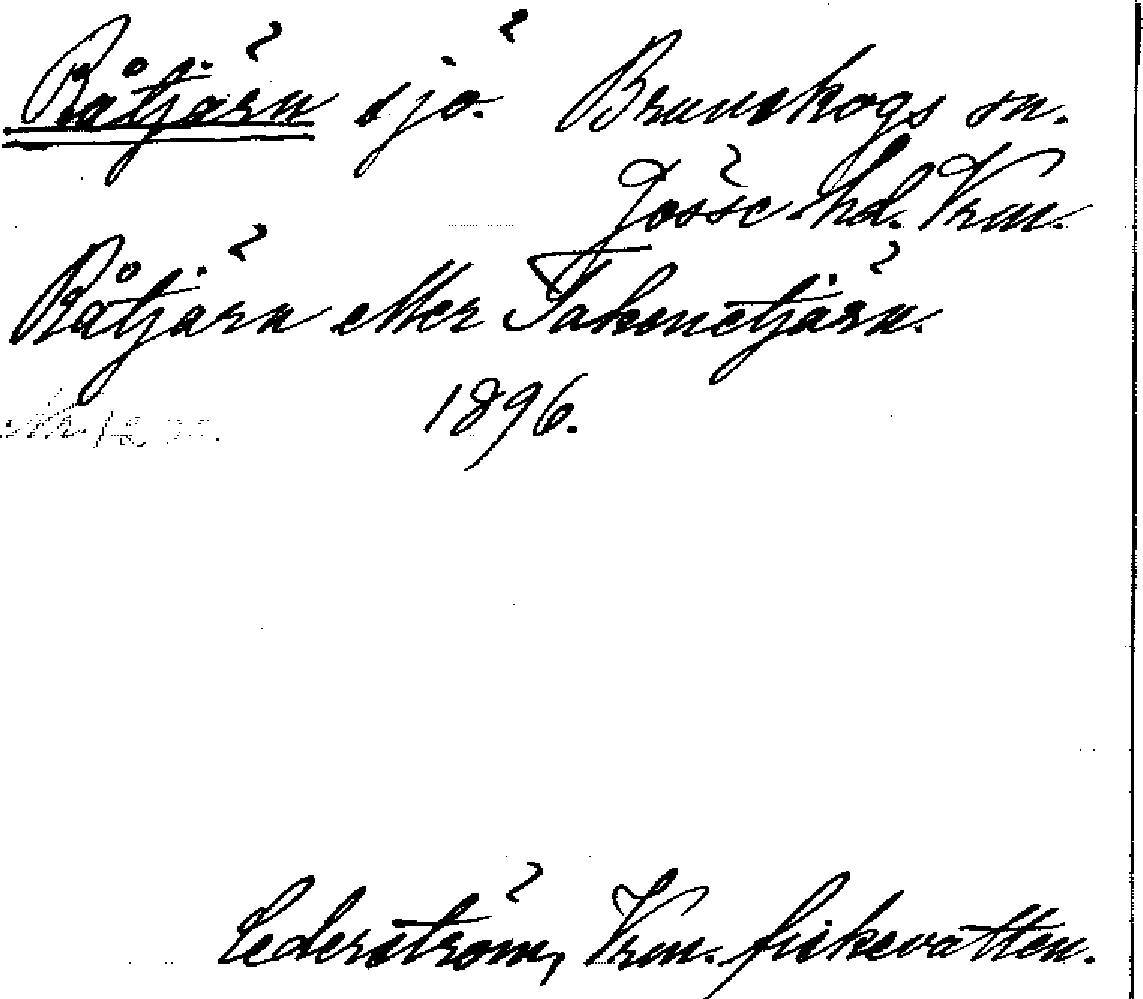 Råtjärn sjö. Brunskogs sn.
Jösse hd. Vrm.
Råtjärn eller Takenetjärn.
1896.
Cederström, Vrm. fiskevatten.